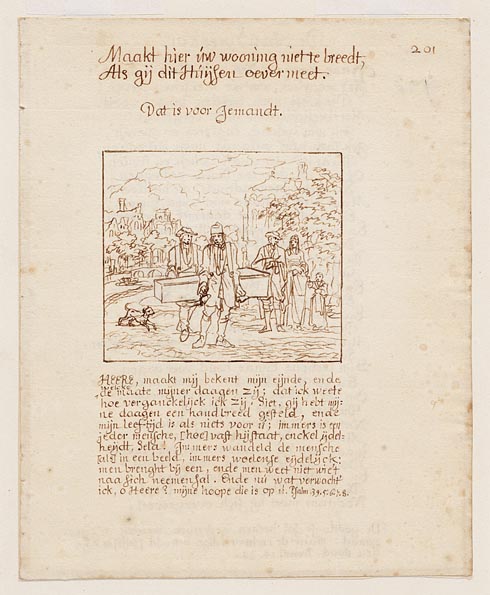 201
Maakt hier úw wooning niet te breedt,
Als gij dit Húijsen oever meet.
Dat is voor Jemandt.
HEERE, maakt mij bekent mijn eijnde, ende
welcke
de maate mijner daagen zij; dat ick weete
hoe verganckelijck ick zij. Siet, gij hebt mij-
ne daagen een hand breed gesteld, ende
mijn leeftijd is als niets voor ú; immers is een
jeder mensche, [hoe] vast hij staat, enckel ijdel-
heijdt, Sela! Immers wandeld de mensche
in een beeld, immers woelense ijdelijck:
men brenght bij een, ende men weet niet wie't
naa sich neemen sal. Ende nú wat verwacht
ick, ô Heere? mijne hoope die is op ú. Psalm 39.5.6.7.8.